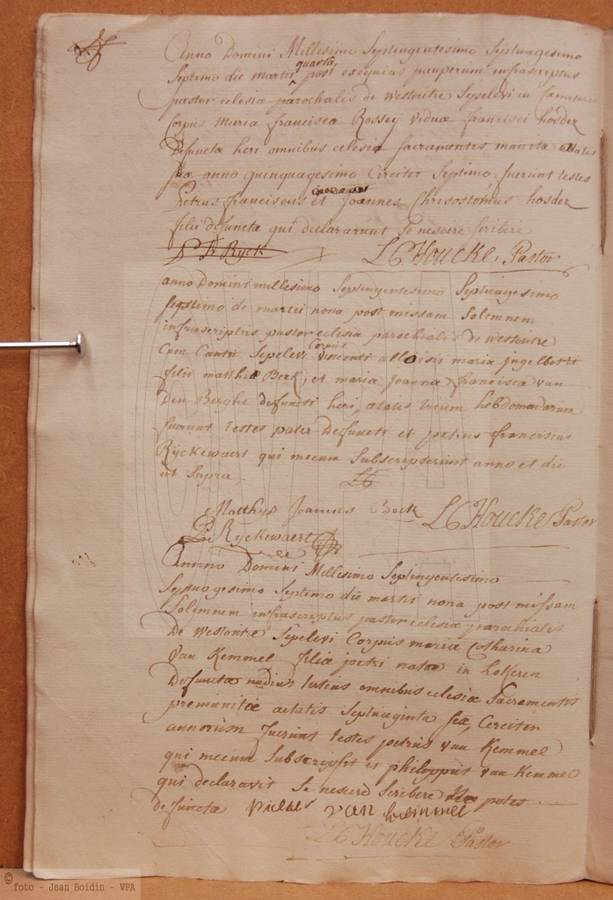 Anno Domini Millesimo Septingentesimo Septuagesimo
Septimo die martii quarta post exequias pauperum infrascriptus
pastor eclesia parochalis de Westoutre Sepelevi in Cæmeterio
Corpus Maria francisca Rossey vidua francisci hosdez
Defuncta heri omnibus eclesia sacramentis munita Ætatis
sua anno quinquagesimo Circiter Septimo fuerunt testes
Petrus franciscus et Joannes Chrisostomus hosdez
filii defuncta qui declararunt se nescire scribere
P D Ryck LC Houcke, Pastor
anno Domini millesimo Septingentesimo Septuagesimo
Septimo die martii nona post missam Solemnem
infrascriptus pastor eclesia parochialis de Westoutre
Cum Cantu Sepelevi Corpus alloisii maria jngelbert
filii matthei Beck, et maria Joanna francisca van
Den Berghe defuncti heri, ætatis trium hebdomadarum
fuerunt testes pater Defuncti et petrus franciscus
Ryckewaert qui mecum Subscripserunt anno et die
ut supra
Matthys Joannes Beck LC Houcke Pastor
Ryckewaert
Annno Domini Millesimo Septingentesimo
Septuagesimo Septimo die martii nona post missam
Solemnem infrascriptus pastor eclesia parochialis
De Westoutre Sepelevi Corpus maria Catharina
Van Kemmel filia petri natæ in Lokeren
Defunctæ nudius tertius omnibus eclesiæ Sacramentis
premunitæ aetatis Septuaginta sex Circiter
annorum fuerunt testes petrus van Kemmel
qui mecum Subscripsit et philippus van Kemmel
qui declaravit se nescire scribere
defuncta van kemmel
LC Houcke Pastor
© foto - Jean Boidin - VPA